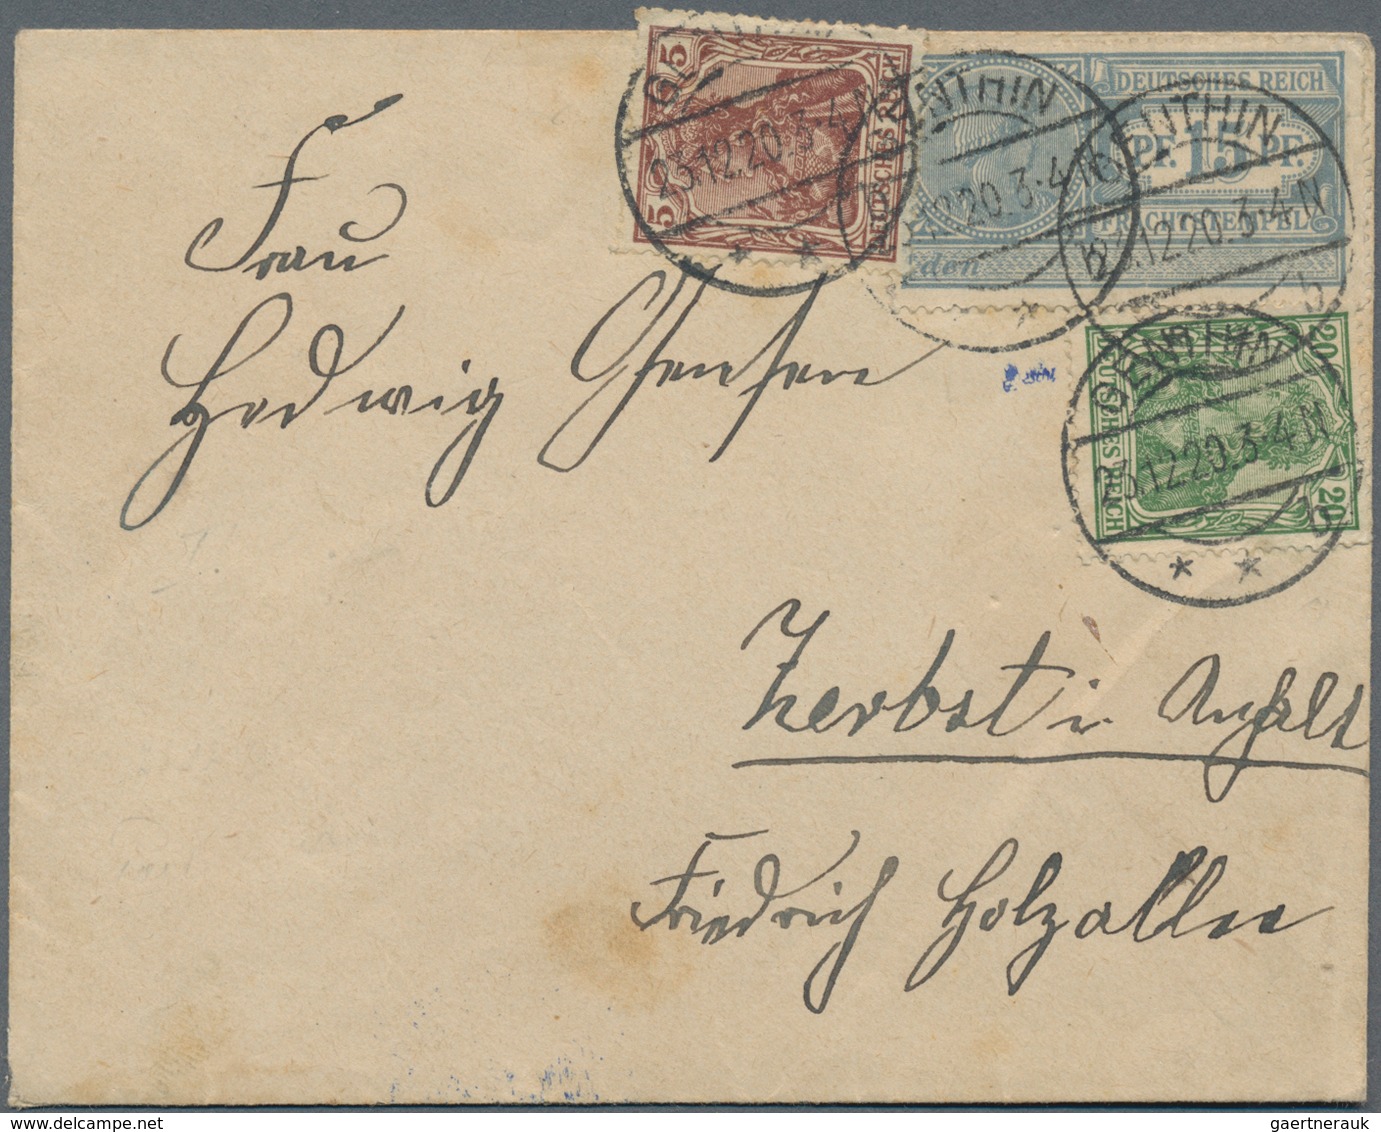 5 5
DEUTSCHES REICH
GENTHIN
23.12.20.3-4 N
DEUTSCHES REICH
PF. 15 PF.
FRACHTSTEMPEL
den
GENTHIN
12.20.3-4 N
GENTHIN
12.20.3-4 N
b
20 20
DEUTSCHES REICH
GENTHIN
23.12.20.3-4 N
b
Frau
Hedwig
Zerbst i. Anhalt
Friedrich Holzallee
gaertnerauk
gaertnerauk